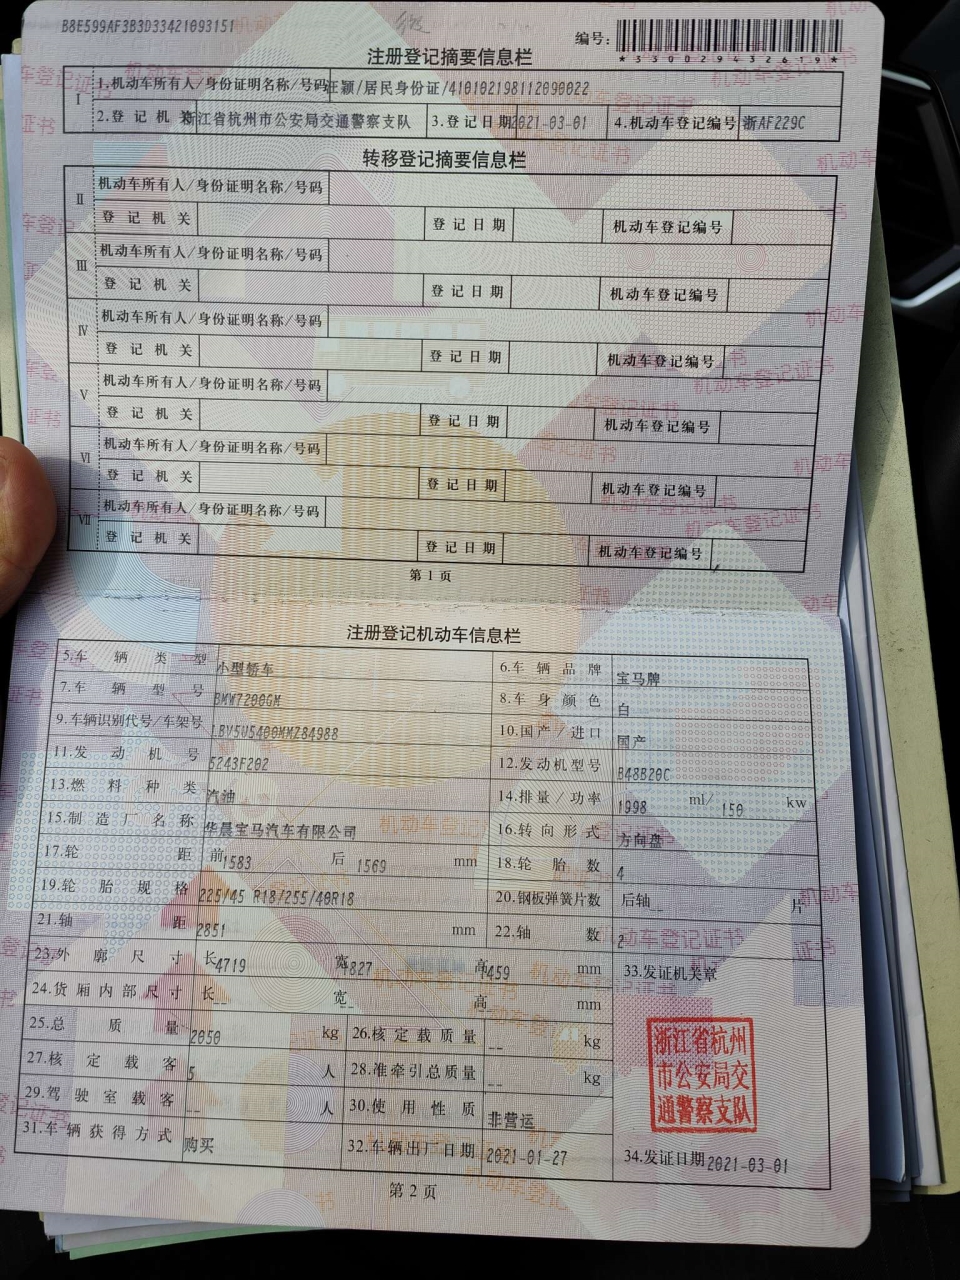 B8E599AF3B3D33421093151
编号:
*330029432619*
注册登记摘要信息栏
I
1.机动车所有人/身份证明名称/号码 王颖/居民身份证/410102198112090022
2.登记机关 浙江省杭州市公安局交通警察支队 3.登记日期 2021-03-01 4.机动车登记编号 浙AF229C
转移登记摘要信息栏
II 机动车所有人/身份证明名称/号码
登记机关 登记日期 机动车登记编号
III 机动车所有人/身份证明名称/号码
登记机关 登记日期 机动车登记编号
IV 机动车所有人/身份证明名称/号码
登记机关 登记日期 机动车登记编号
V 机动车所有人/身份证明名称/号码
登记机关 登记日期 机动车登记编号
VI 机动车所有人/身份证明名称/号码
登记机关 登记日期 机动车登记编号
VII 机动车所有人/身份证明名称/号码
登记机关 登记日期 机动车登记编号
第1页
注册登记机动车信息栏
5.车辆类型 小型轿车 6.车辆品牌 宝马牌
7.车辆型号 BMW7200GM 8.车身颜色 白
9.车辆识别代号/车架号 LBV5U5400MMZ84988 10.国产/进口 国产
11.发动机号 5243F202 12.发动机型号 B48B20C
13.燃料种类 汽油 14.排量/功率 1998 ml/ 150 kw
15.制造厂名称 华晨宝马汽车有限公司 16.转向形式 方向盘
17.轮距 前1583 后 1569 mm 18.轮胎数 4
19.轮胎规格 225/45 R18/255/40R18 20.钢板弹簧片数 后轴-- 片
21.轴距 2851 mm 22.轴数 2
23.外廓尺寸 长4719 宽1827 高1459 mm 33.发证机关章
24.货厢内部尺寸 长-- 宽-- 高-- mm
25.总质量 2050 kg 26.核定载质量 -- kg
27.核定载客 5 人 28.准牵引总质量 -- kg
29.驾驶室载客 -- 人 30.使用性质 非营运
31.车辆获得方式 购买 32.车辆出厂日期 2021-01-27 34.发证日期 2021-03-01
浙江省杭州
市公安局交
通警察支队
第2页